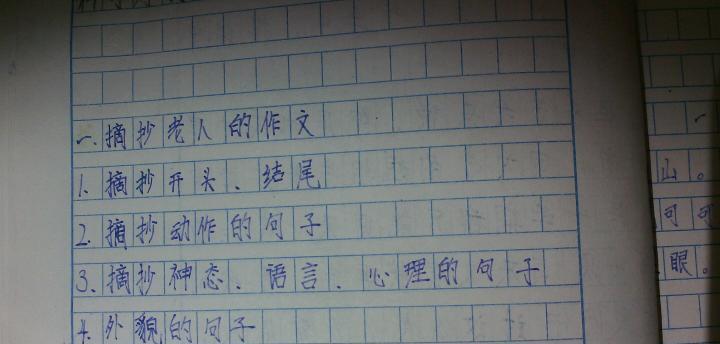 一、摘抄老人的作文
1. 摘抄开头、结尾
2. 摘抄动作的句子
3、摘抄神态、语言、心理的句子
4. 外貌的句子
一
山。
可可
眼。